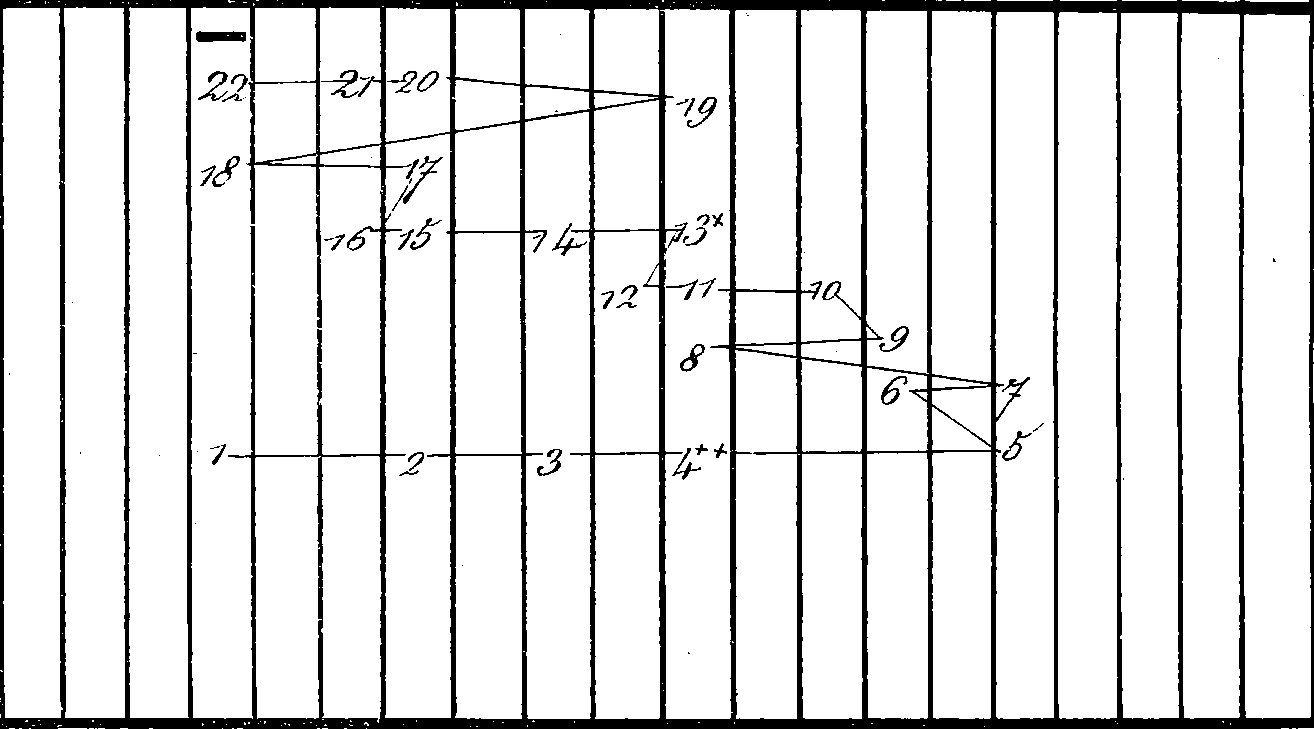 22 21 20
19
18 17
16 15 14 13×
12 11 10
9
8
6 7
1 2 3 4++ 5